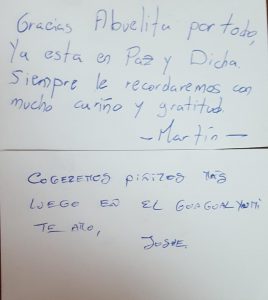 Gracias Abuelita por todo,
Ya esta en Paz y Dicha.
Siempre le recordaremos con
mucho cariño y gratitud.
- Martín -
COGEREMOS PIÑITOS MAS
LUEGO EN EL
TE AMO,
JOSUE.